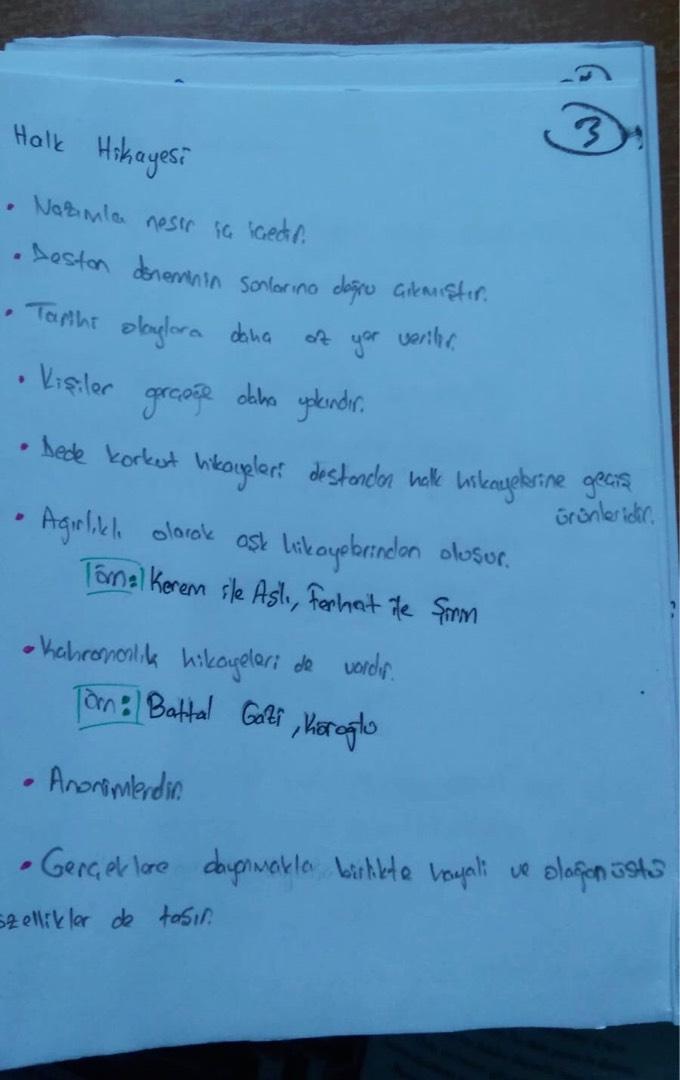 3
Halk Hikayesi
• Nazımla nesir iç içedir.
• Destan döneminin sonlarına doğru çıkmıştır.
• Tarihi olaylara daha az yer verilir.
• Kişiler gerçeğe daha yakındır.
• Dede korkut hikayeleri destandan halk hikayelerine geçiş
ürünleridir.
• Ağırlıklı olarak aşk hikayelerinden oluşur.
örn: Kerem ile Aslı, Ferhat ile Şirin
• Kahramanlık hikayeleri de vardır.
örn: Battal Gazi, Köroğlu
• Anonimlerdir.
• Gerçeklere dayanmakla birlikte hayali ve olağanüstü
özellikler de taşır.